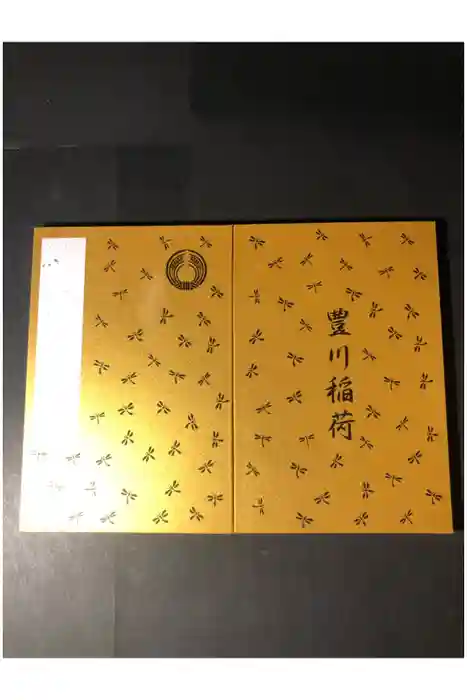 豊川稲荷